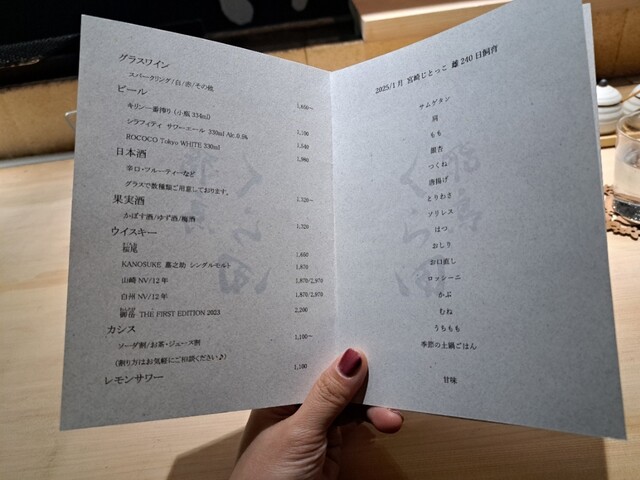 グラスワイン
スパークリング/白/赤/その他
1,650〜
ビール
キリン一番搾り (小瓶 334ml)
1,100
シラフィティ サワーエール 330ml Alc.0.5%
1,540
ROCOCO Tokyo WHITE 330ml
1,980
日本酒
辛口・フルーティーなど
グラスで数種類ご用意しております。
1,320〜
果実酒
かぼす酒/ゆず酒/梅酒
1,320
ウイスキー
桜尾
1,650
KANOSUKE 嘉之助 シングルモルト
1,870
山崎 NV/12年
1,870/2,970
白州 NV/12年
1,870/2,970
御岳 THE FIRST EDITION 2023
2,200
カシス
ソーダ割/お茶・ジュース割
1,100〜
(割り方はお気軽にご相談ください♪)
レモンサワー
1,100
2025/1月 宮崎じとっこ 雌 240日飼育
サムゲタン
肩
もも
銀杏
つくね
唐揚げ
とりわさ
ソリレス
はつ
おしり
お口直し
ロッシーニ
かぶ
むね
うちもも
季節の土鍋ごはん
甘味